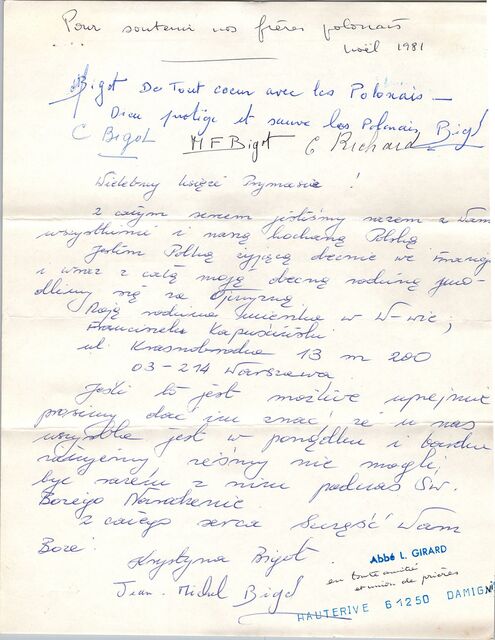 Pour soutenir nos frères polonais
... Noël 1981
Bigot De Tout coeur avec les Polonais —
Dieu protège et sauve les Polonais Bigot
C Bigot M F Bigot C Richard
Wielebny księże Prymasie !
z całym sercem jesteśmy razem z Wami
wszystkimi i naszą kochaną Polską
Jestem Polką żyjącą obecnie we Francji
i wraz z całą moją obecną rodziną mo-
dlimy się za Ojczyznę
Moja rodzina mieszka w W-wie,
Franciszka Kapuściński
ul. Krasnobrodzka 13 m 200
03-214 Warszawa
Jeśli to jest możliwe uprzejmie
prosimy dać im znać, że u nas
wszystko jest w porządku i bardzo
żałujemy żeśmy nie mogli,
być razem z nimi podczas Św.
Bożego Narodzenia
z całego serca Szczęść Wam
Boże!
Krystyna Bigot
Jean-Michel Bigot
Abbé L. GIRARD
en toute amitié
et union de prières
HAUTERIVE 61250 DAMIGNI